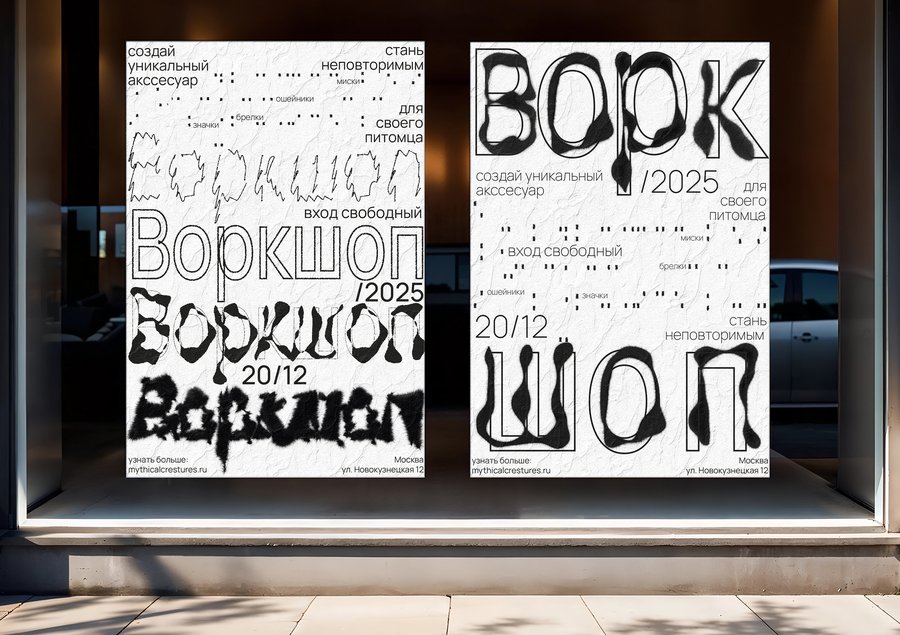 создай
уникальный
акссесуар
стань
неповторимым
миски
ошейники
брелки
значки
для
своего
питомца
Воркшоп
вход свободный
Воркшоп
/2025
Воркшоп
20/12
Воркшоп
узнать больше:
mythicalcrestures.ru
Москва
ул. Новокузнецкая 12
Ворк
/2025
создай уникальный
акссесуар
для
своего
питомца
миски
вход свободный
брелки
ошейники
значки
20/12
стань
неповторимым
шоп
узнать больше:
mythicalcrestures.ru
Москва
ул. Новокузнецкая 12